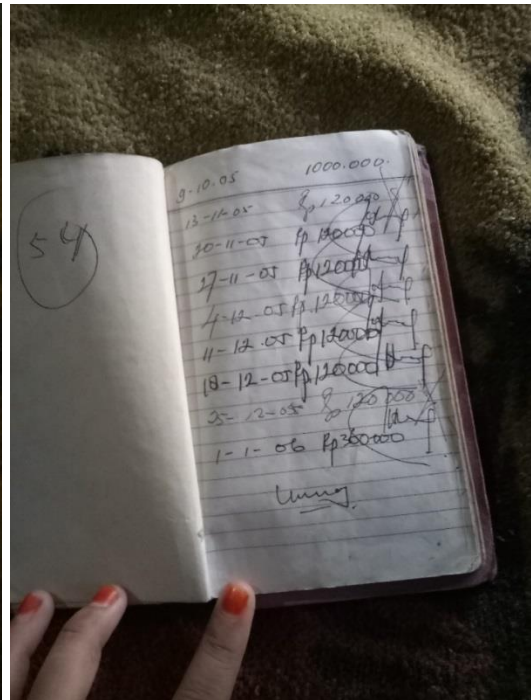 54
9-10.05 1000.000.
13-11-05 Rp 120.000
20-11-05 Rp 120000
27-11-05 Rp 120000
4-12-05 Rp 120000
11-12.05 Rp 120000
18-12-05 Rp 120000
25-12-05 Rp 120.000
1-1-06 Rp 360000